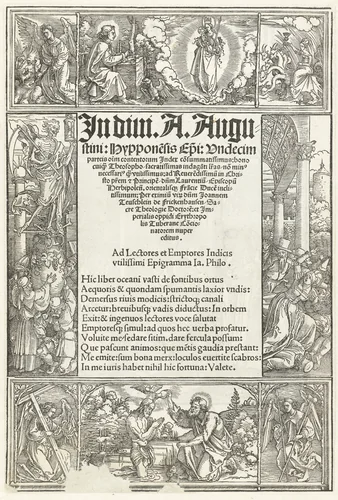 In diui. A. Augu
stini: Hypponēsis Ep̄i: Vndecim
partes oīm contentorum Index
necessari9
pīem et Principē dn̄m Laurentiū Episcopū
Herbipoleñ. orientalisq̄ Frācie Ducē incli-
tissimum: Per eximiū virū dn̄m Joannem
Teuschlein de Frickenhausen Sa-
cre Theologie Doctorē: et Im-
perialis oppidi Erythropo
lis Tuberane Cōcio-
natorem nuper
editus.
Ad Lectores et Emptores Indicis
vtilissimi Epigramma Ia. Philo.
Hic liber oceani vasti de fontibus ortus
Aequoris & quondam spumantis laxior vndis:
Demersus riuis modicis: strictoq; canali
Arcetur: breuibusq; vadis diductus: In orbem
Exit: & ingenuos lectores voce salutat
Emptoresq; simul: ad quos hec verba profatur.
Voluite me: sedare sitim, dare fercula possum:
Que pascunt animos: que mētis gaudia prestant:
Me emite: sum bona merx: loculos euertite scabros:
In me iuris habet nihil hic fortuna: Valete.